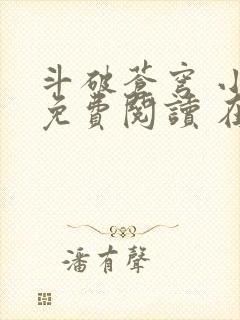 斗破蒼穹 小
免費閱讀 在
潘有聲